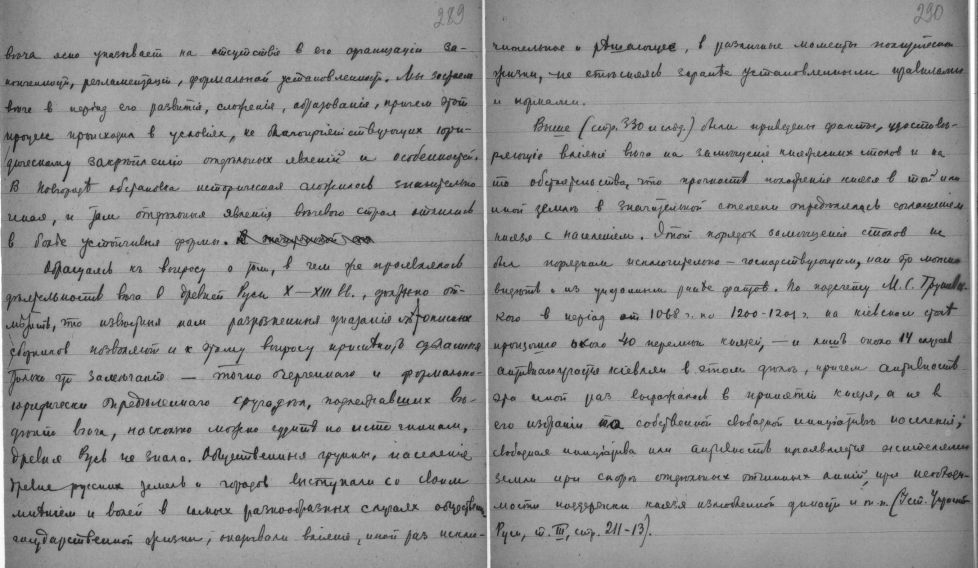 289
вѣча ясно указываетъ на отсутствіе в его организаціи за-
конченности, регламентаціи, формальной установленности. Мы застаем
вѣче в періодъ его развитія, сложенія, образованія, причем этот
процесс происходил в условіях, не благопріятствующих юри-
дическому закрѣпленію отдѣльных явленій и особенностей.
В Новгородѣ обстановка историческая сложилась значительно
иная, и там отдѣльныя явленія вѣчевого строя отлились
в болѣе устойчивыя формы.
Обращаясь къ вопросу о том, в чем же проявлялась
дѣятельность вѣча в древней Руси X–XIII вв., должно от-
мѣтить, что извѣстныя нам разрозненныя указанія лѣтописных
сводников позволяют и к этому вопросу
только то заключеніе — точно очерченнаго и формально-
юридически опредѣленнаго круга дѣл, подлежавших вѣ-
дѣнію вѣча, насколько можно судить по источникам,
древняя Русь не знала. Общественныя группы, населеніе
древне русских земель и городов выступали со своим
мнѣнием и волей в самых разнообразных случаях обществен.
государственной жизни, оказывали вліяніе, иной раз исклю-
290
чительное и рѣшающее, в различные моменты
жизни, не стѣсняясь заранѣе установленными правилами
и нормами.
Выше (стр. 330 и слѣд.) были приведены факты, удостовѣ-
ряющіе вліяніе вѣча на замѣщеніе княжеских столов и на
то обстоятельство, что прочность положенія князя в той или
иной землѣ в значительной степени опредѣлялась соглашеніем
князя с населеніем. Этот порядок замѣщенія столов не
был порядком исключительно – господствующим, как то можно
видѣть и из указанных ранѣе фактов. По подсчету М. С. Грушевс-
кого в періодъ от 1068 г. по 1200-1201 г. на кіевском столѣ
произошло около 40 перемѣн князей, — и лишь около 14 случаев
активнаго участія кіевлян в этом дѣлѣ, причем активность
эта иной раз выражалась в принятіи князя, а не в
его избраніи по собственной свободной иниціативѣ населенія;
свободная иниціатива или активность проявляется жителями
земли при спорѣ отдѣльных линій, при необходи-
мости поддержки князя излюбленной династіи и т. п. (Ист. Украины
Руси, т. III, стр. 211-13).